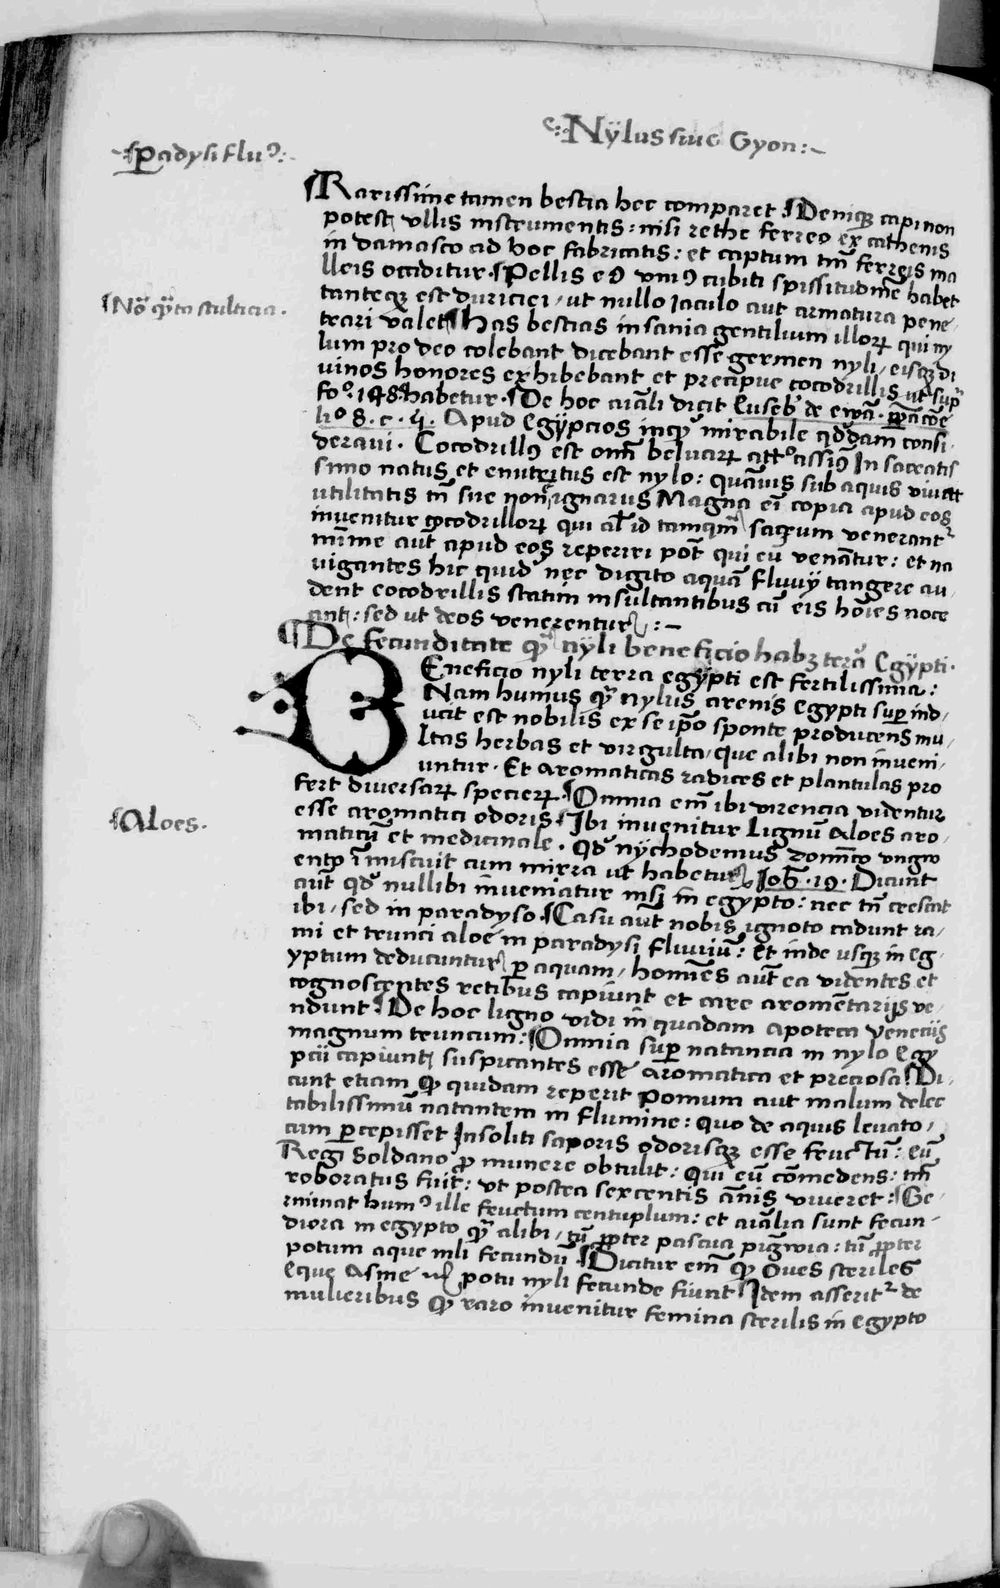 Nÿlus siue Gyon:~
¶Padysi fluꝰ:~
¶Rarissime tamen bestia hec comparet ¶Deniqꝫ capi non
potest vllis instrumentis: nisi rethe ferreo ex cathenis
in damasco ad hoc fabricatis: et captum tm̄ ferreis ma
lleis occiditur. ¶Pellis eꝰ vniꝰ cubiti spissitudinē habet
¶Nō qͣ̄ta stulticia.
tanteqꝫ est duriciei, ut nullo Jaculo aut armatura pene/
trari valet ¶Has bestias insania gentilium illoꝝ qui ny
lum pro deo colebant dicebant esse germen nyli, eisqꝫ di
uinos honores exhibebant et precipue cocodrillis ut supͣ
foº. 148. habetur. ¶De hoc aīali dicit Euseb' de ewā.
liº 8. c. ij. Apud Egÿpcios inqͥ mirabile qddam consi.
deraui. Cocodrillꝰ est oīm beluaꝝ In sacratis
simo natus et enutritus est nylo: quāuis sub aquis viuat
utilitatis tn̄ sue non ignarus Magna eī copia apud eos
inuenitur cocodrilloꝝ qui al' id tamqͣm sacrum venerantᷣ
mīme aūt apud eos reperiri pōt qui eū venātur: et na
uigantes hic quidē nec digito aquā fluuÿ tangere au/
dent cocodrillis statim insultantibus cū eis hoīes noce
ant: sed ut deos venerentur :~
¶De fecunditate qͣ nyli beneficio habꝫ terͣ Egÿpti.
BEneficio nyli terra egÿpti est fertilissima:
Nam humus qͣ nylus arenis Egypti supind/
ucit est nobilis ex se ip̄o sponte producens mu/
ltas herbas et virgulta, que alibi non inueni/
untur. Et Aromaticas radices et plantulas pro
fert diuersaꝝ specieꝝ. ¶Omnia em̄ ibi virencia videntur
¶Aloes.
esse aromatici odoris ¶Ibi inuenitur Lignū Aloes aro/
maticū et medicinale. qd' nychodemus domīco vngno
ento īmiscuit cum mirra ut habetur Joh̄. 19. Dicunt
aūt qd' nullibi inueniatur nisi in egypto: nec tn̄ crescat
ibi, sed in paradyso. ¶Casu aūt nobis ignoto cadunt ra/
mi et trunci aloe in paradysi fluuiū: et inde usqꝫ in Eg.
yptum deducuntur ꝑ aquam, homīes aūt ea videntes et
cognoscentes retibus capiunt et care aromētarijs ve/
ndunt ¶De hoc ligno vidi in quadam Apoteca Veneciis
magnum truncum: ¶Omnia supernatancia in nylo Egy
pcii capiunt suspicantes esse aromatica et preciosa ¶Di/
cunt etiam ꝙ quidam reperit pomum aut malum delec
tabilissimū natantem in flumine: quo de aquis leuato,
cum ꝑcepisset Insoliti saporis odorisqꝫ esse fructū: eū
Regi Soldano ꝓ munere obtulit: qui eū cōmedens: tm̄
roboratus fuit: ut postea sexcentis ānis viueret: ¶Ge/
rminat humꝰ ille fructum centuplum: et aīalia sunt fecun/
diora in egypto qͣ alibi, tū ꝓpter pascua pigwia: tū ꝓpter
potum aque nili fecundū ¶Dicitur em̄ ꝙ Oues steriles
Eque Asine potu nyli fecunde fiunt ¶Idem asseritᷣ de
mulieribus ꝙ raro inuenitur femina sterilis in egypto